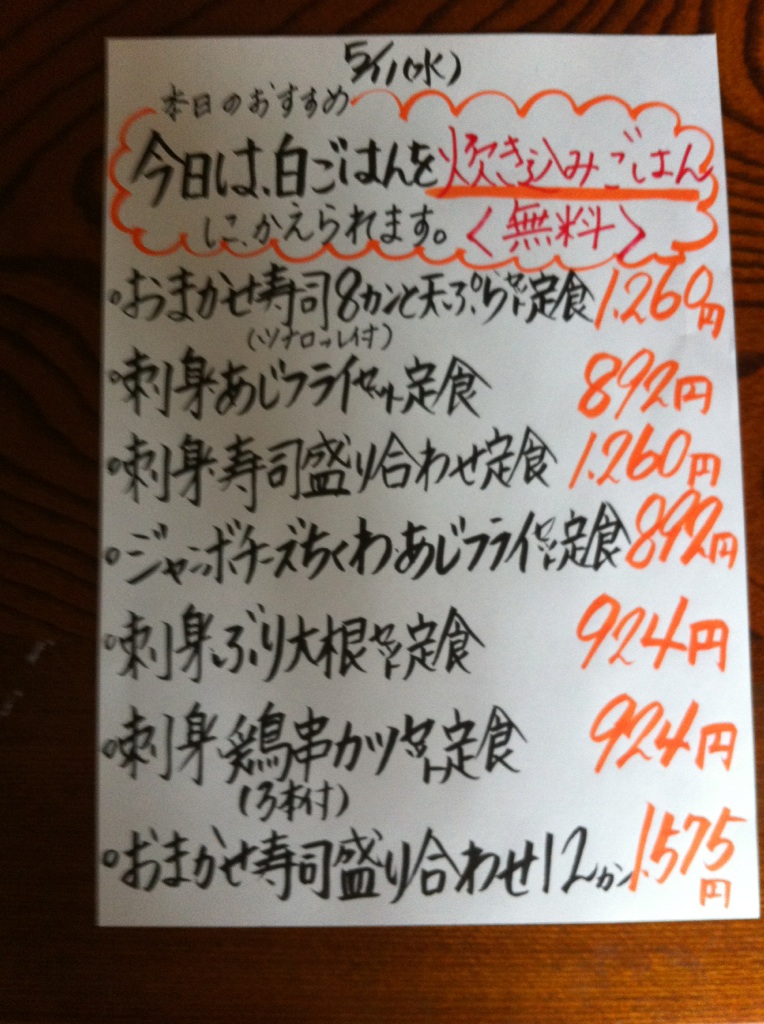 5/11(水)
本日のおすすめ
今日は、白ごはんを炊き込みごはん
に、かえられます。〈無料〉
・おまかせ寿司8カンと天ぷらセット定食 1.260円
(ツナロール付)
・刺身・あじフライセット定食 892円
・刺身・寿司盛り合わせ定食 1.260円
・ジャンボチーズちくわ・あじフライセット定食 892円
・刺身・ぶり大根セット定食 924円
・刺身・鶏串カツセット定食 924円
(3本付)
・おまかせ寿司盛り合わせ12カン 1.575円